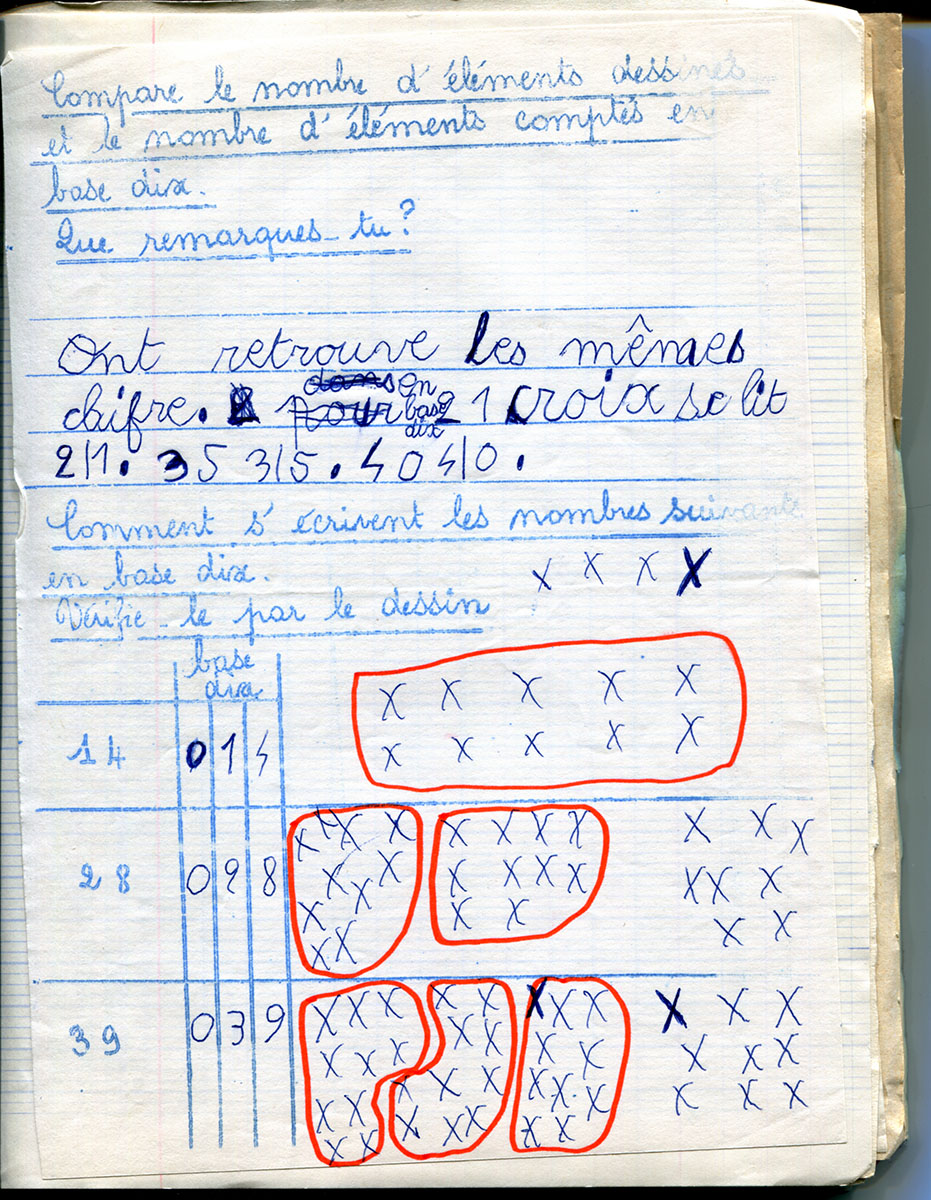 Compare le nombre d'éléments dessinés
et le nombre d'éléments comptés en
base dix.
Que remarques-tu?
Ont retrouve les mêmes
chifre. en base dix 21 croix se lit
2/1. 35 3/5. 40 4/0.
Comment s'écrivent les nombres suivants
en base dix.
X X X X
Vérifie-le par le dessin
base
dix
14 0 1 4
X X X X X
X X X X X
28 0 2 8
39 0 3 9